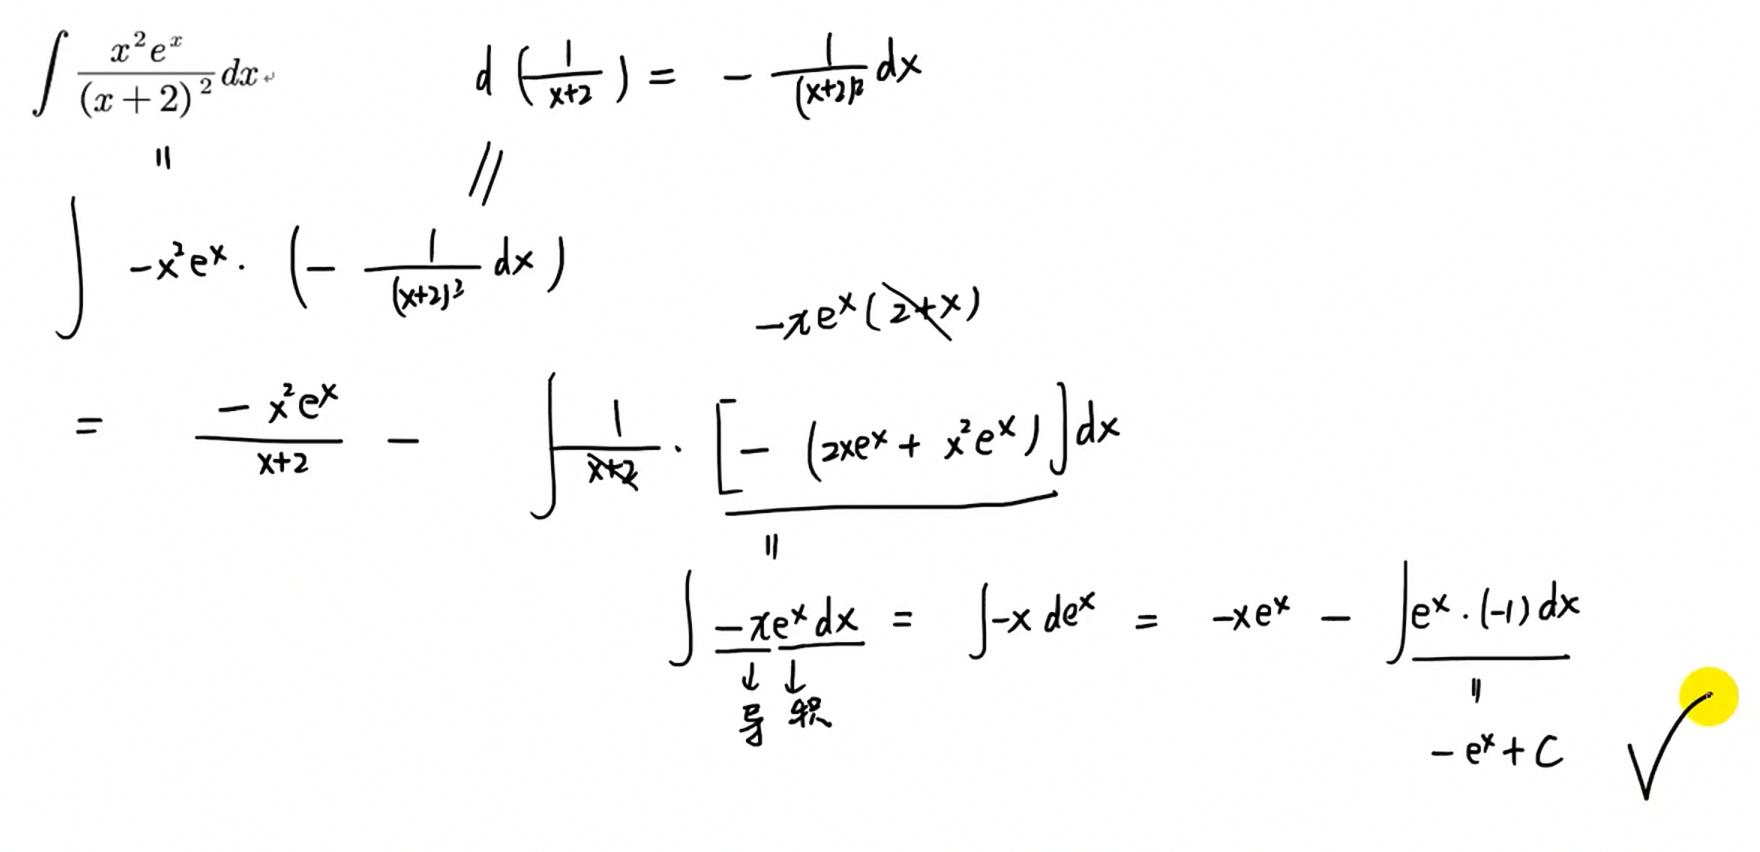 ∫ x²eˣ/(x+2)² dx↵    d(1/(x+2)) = - 1/(x+2)² dx
=    //
∫ -x²eˣ · (- 1/(x+2)² dx)
-xeˣ(2+x)
= -x²eˣ/(x+2) - ∫ 1/(x+2) · [- (2xeˣ + x²eˣ)] dx
=
∫ -xeˣ dx = ∫ -x deˣ = -xeˣ - ∫ eˣ · (-1) dx
↓ ↓    =
导 积
-eˣ + C ✓